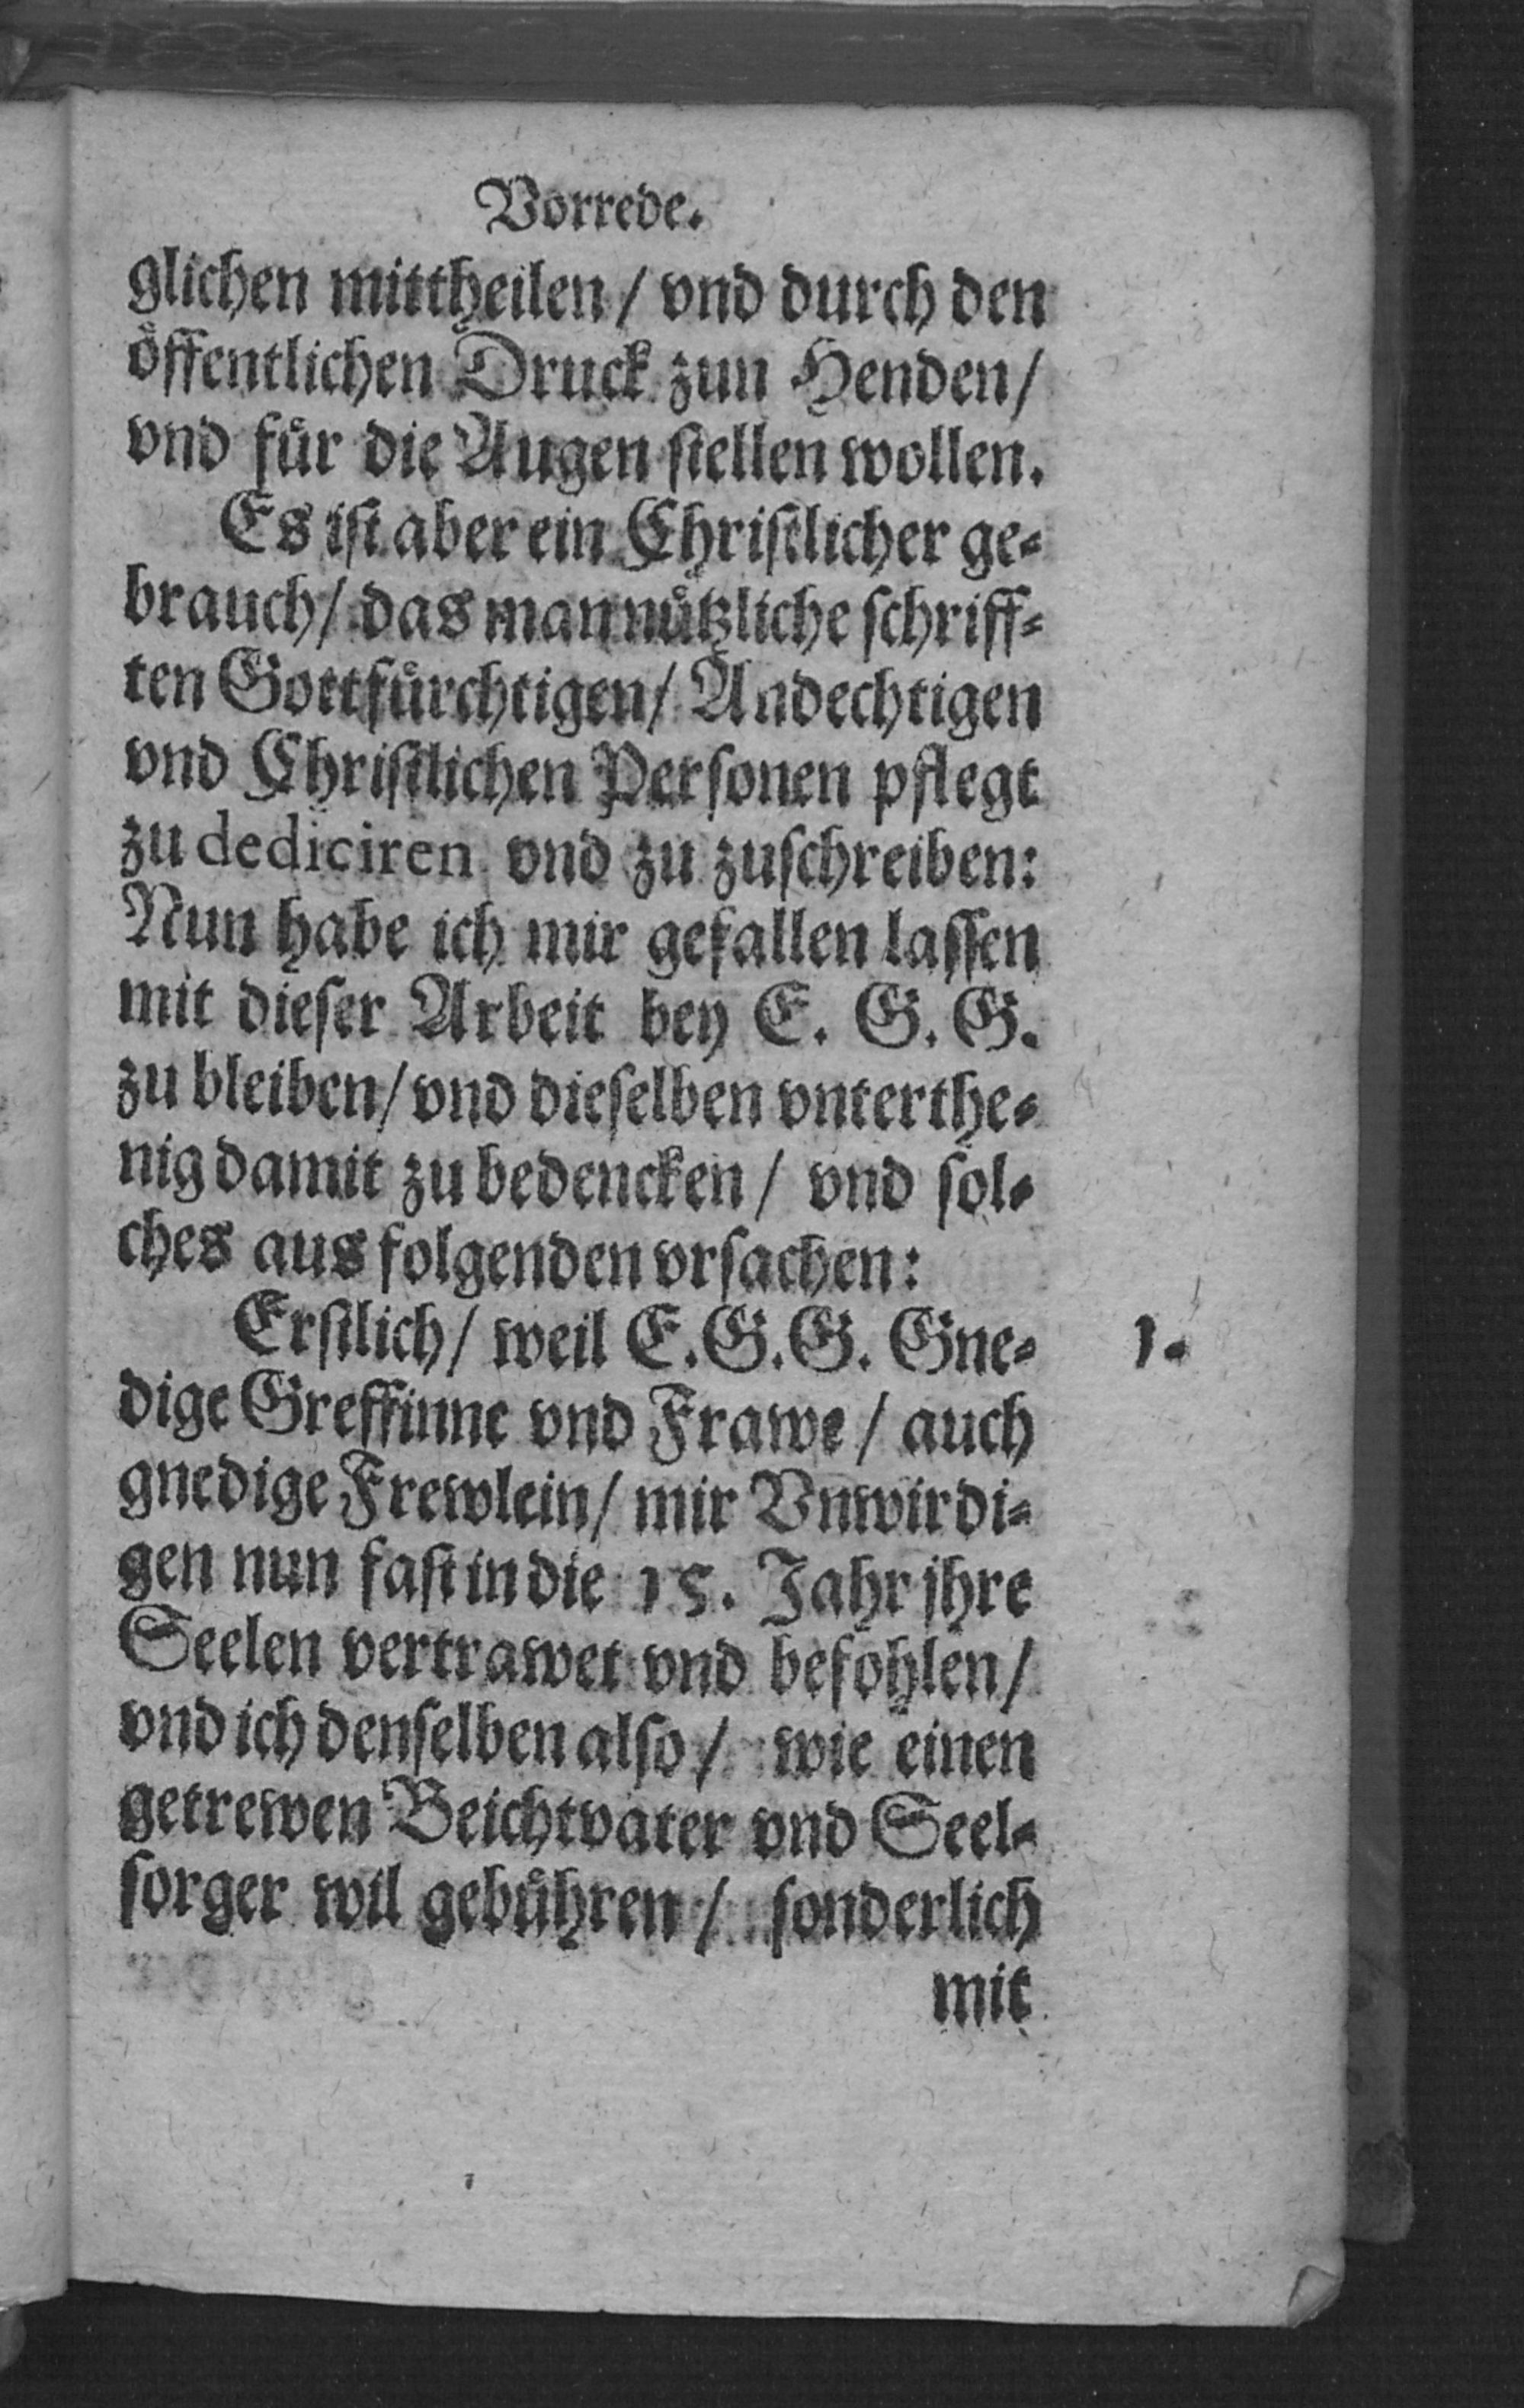 Vorrede.
glichen mittheilen / vnd durch den
öffentlichen Druck zun Henden /
vnd für die Augen stellen wollen.
Es ist aber ein Christlicher ge-
brauch / das man nützliche schriff-
ten Gottfürchtigen / Andechtigen
vnd Christlichen Personen pflegt
zu dediciren vnd zu zuschreiben:
Nun habe ich mir gefallen lassen
mit dieser Arbeit bey E. G. G.
zu bleiben / vnd dieselben vnterthe-
nig damit zu bedencken / vnd sol-
ches aus folgenden vrsachen:
Erstlich / weil E. G. G. Gne- 1.
dige Greffinne vnd Frawe / auch
gnedige Frewlein / mir Vnwirdi-
gen nun fast in die 15. Jahr jhre
Seelen vertrawet vnd befohlen /
vnd ich denselben also / wie einen
getrewen Beichtvater vnd Seel-
sorger wil gebühren / sonderlich
mit